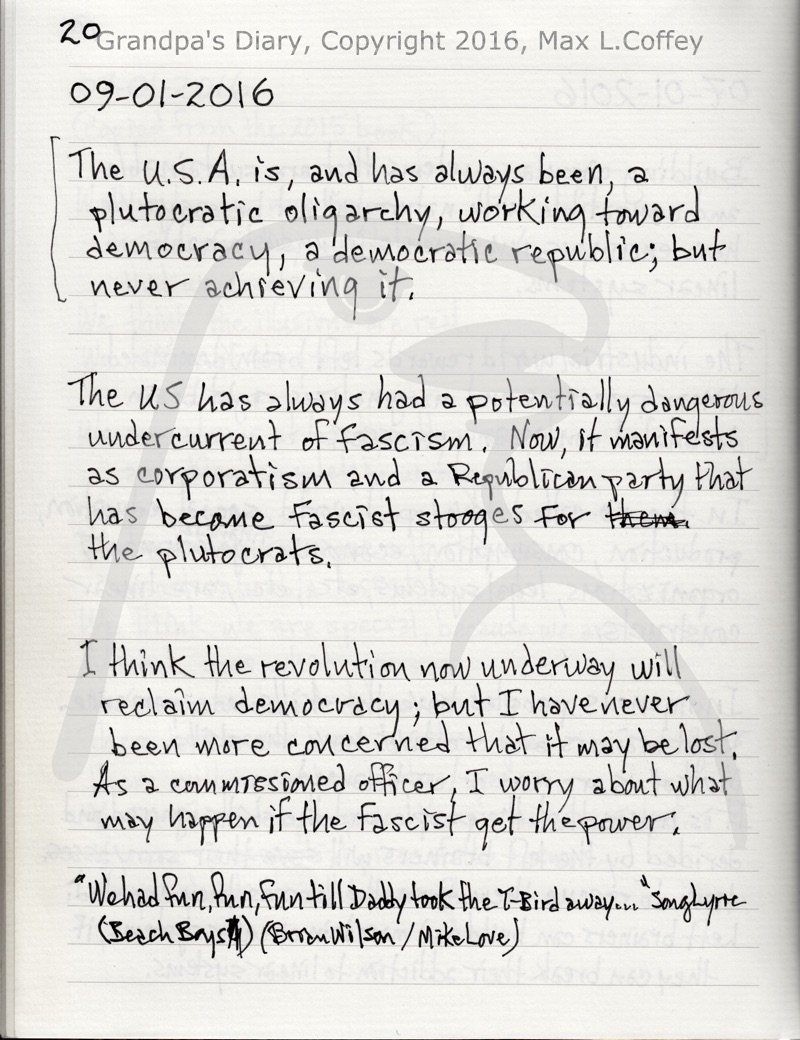 20
Grandpa's Diary, Copyright 2016, Max L.Coffey
09-01-2016
The U.S.A. is, and has always been, a
plutocratic oligarchy, working toward
democracy, a democratic republic; but
never achieving it.
The US has always had a potentially dangerous
undercurrent of fascism. Now, it manifests
as corporatism and a Republican party that
has become fascist stooges for them.
the plutocrats.
I think the revolution now underway will
reclaim democracy; but I have never
been more concerned that it may be lost.
As a commissioned officer, I worry about what
may happen if the fascist get the power.
"We had fun, fun, fun till Daddy took the T-Bird away..." Song Lyric
(Beach Boys) (Brian Wilson / Mike Love)